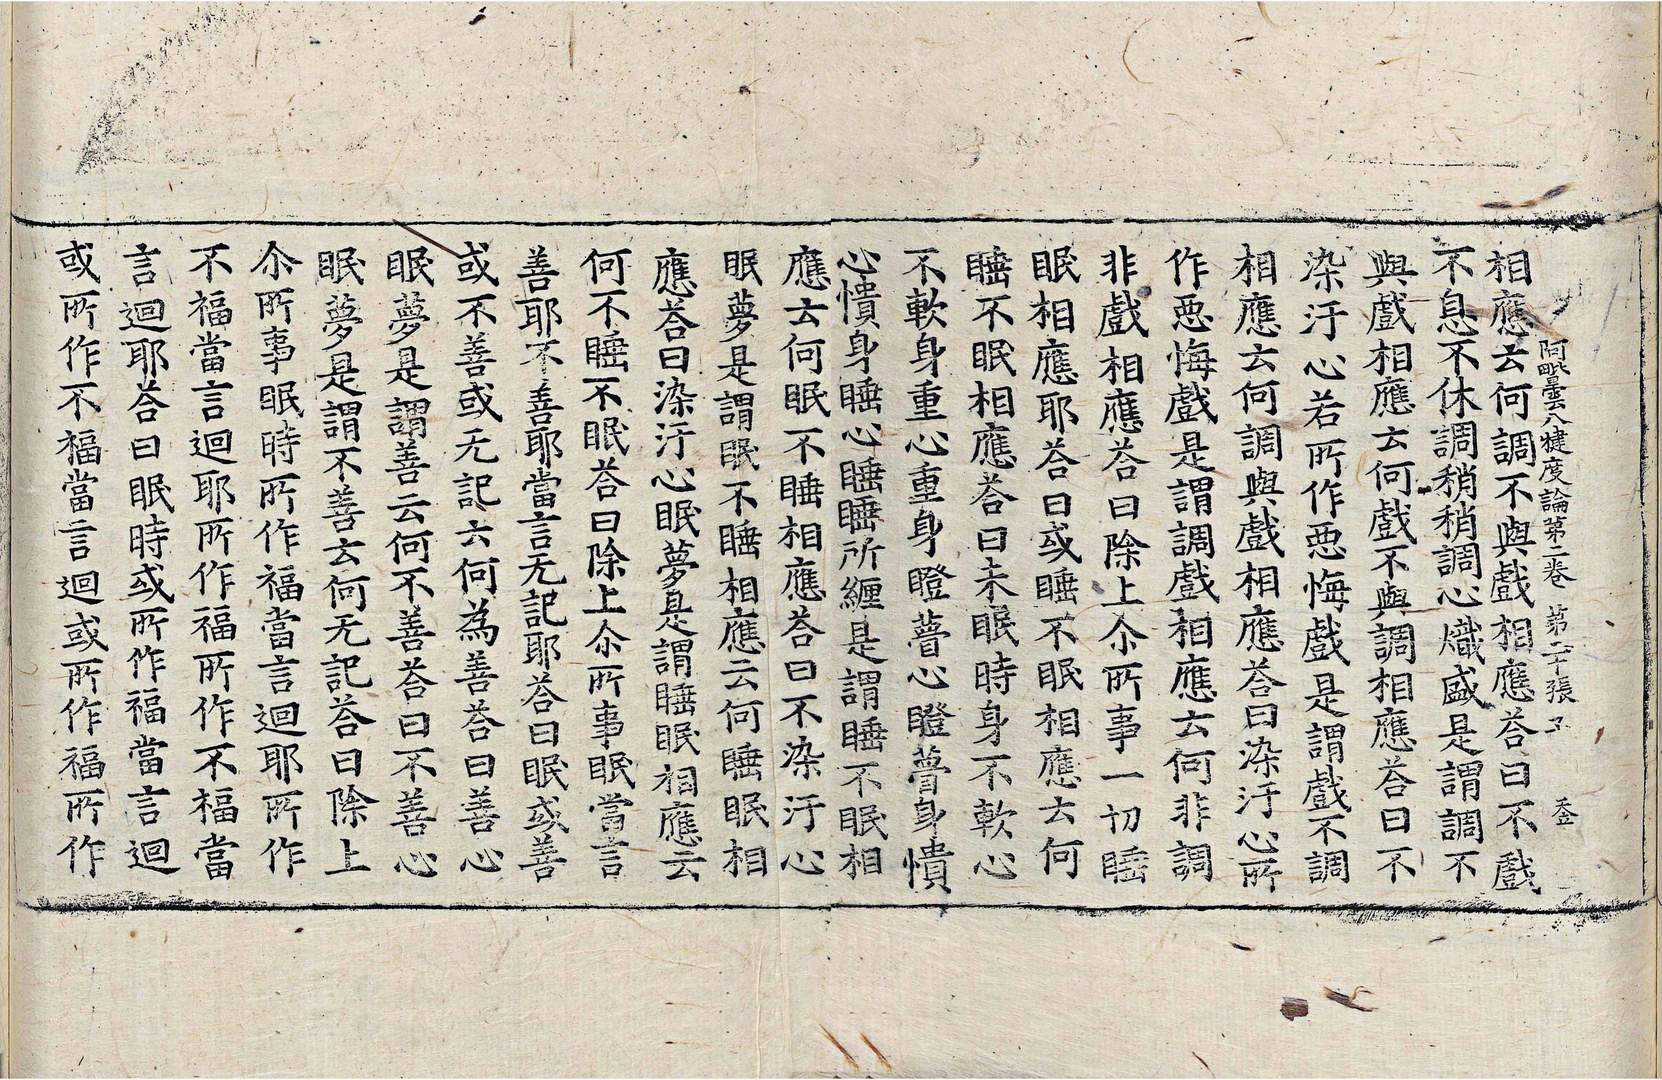 阿毗曇八犍度論第二卷 第二十張
相應云何調不與戲相應荅曰不戲
不息不休調稍稍調心熾盛是謂調不
與戲相應云何戲不與調相應荅曰不
染汙心若所作惡悔戲是謂戲不調
相應云何調與戲相應荅曰染汙心所
作惡悔戲是謂調戲相應云何非調
非戲相應荅曰除上尒所事一切睡
眠相應耶荅曰或睡不眠相應云何
睡不眠相應荅曰未眠時身不軟心
不軟身重心重身瞪瞢心瞪瞢身憒
心憒身睡心睡睡所纏是謂睡不眠相
應云何眠不睡相應荅曰不染汙心
眠夢是謂眠不睡相應云何睡眠相
應荅曰染汙心眠夢是謂睡眠相應云
何不睡不眠荅曰除上尒所事眠當言
善耶不善耶當言无記耶荅曰眠或善
或不善或无記云何為善荅曰善心
眠夢是謂善云何不善荅曰不善心
眠夢是謂不善云何无記荅曰除上
尒所事眠時所作福當言迴耶所作
不福當言迴耶所作福所作不福當
言迴耶荅曰眠時或所作福當言迴
或所作不福當言迴或所作福所作